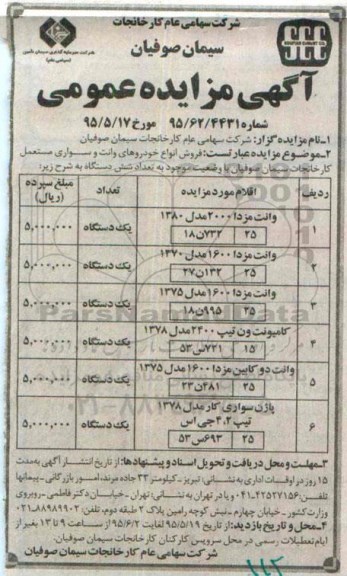 شرکت سهامی عام کارخانجات
سیمان صوفیان
آگهی مزایده عمومی
شماره ۹۵/۶۲/۴۴۳۱ مورخ ۹۵/۵/۱۷
۱-نام مزایده گزار: شرکت سهامی عام کارخانجات سیمان صوفیان
۲-موضوع مزایده عبارتست: فروش انواع خودروهای وانت و سواری مستعمل
کارخانجات سیمان صوفیان با وضعیت موجود به تعداد شش دستگاه به شرح زیر:
ردیف اقلام مورد مزایده تعداد مبلغ سپرده (ریال)
۱ وانت مزدا ۲۰۰۰ مدل ۱۳۸۰ یک دستگاه ۵,۰۰۰,۰۰۰
۲۵ ۷۳۲ن۱۸
۲ وانت مزدا ۱۶۰۰ مدل ۱۳۷۰ یک دستگاه ۵,۰۰۰,۰۰۰
۲۵ ۱۳۲ن۲۷
۳ وانت مزدا ۱۶۰۰ مدل ۱۳۷۵ یک دستگاه ۵,۰۰۰,۰۰۰
۲۵ ۹۹۵ن۱۸
۴ کامیونت ون تیپ ۲۴۰۰ مدل ۱۳۷۸ یک دستگاه ۵,۰۰۰,۰۰۰
۱۵ ۷۲۱س۵۳
۵ وانت دو کابین مزدا ۱۶۰۰ مدل ۱۳۷۵ یک دستگاه ۵,۰۰۰,۰۰۰
۲۵ ۴۸۱ن۲۳
۶ پاژن سواری کار مدل ۱۳۷۸ یک دستگاه ۵,۰۰۰,۰۰۰
تیپ ۴.۲ جی اس
۲۵ ۶۹۳س۵۳
۳-مهلت و محل دریافت و تحویل اسناد و پیشنهادها: از تاریخ انتشار آگهی به مدت
۱۵ روز در اوقات اداری به نشانی: تبریز - کیلومتر ۳۳ جاده مرند، امور بازرگانی - پیمانها
تلفن: ۰۴۱-۴۲۵۲۷۱۵۶ و یا در تهران به نشانی: تهران - خیابان دکتر فاطمی - روبروی
وزارت کشور - خیابان چهارم - نبش کوچه رامین پلاک ۲ طبقه دوم، تلفن: ۰۲۱-۸۸۹۸۹۹۰۲
۴-محل و تاریخ بازدید: از تاریخ ۹۵/۵/۱۹ لغایت ۹۵/۶/۲ از ساعت ۹ تا ۱۳ بغیر از
ایام تعطیلات رسمی در محل سرویس کارکنان کارخانجات سیمان صوفیان.
شرکت سهامی عام کارخانجات سیمان صوفیان